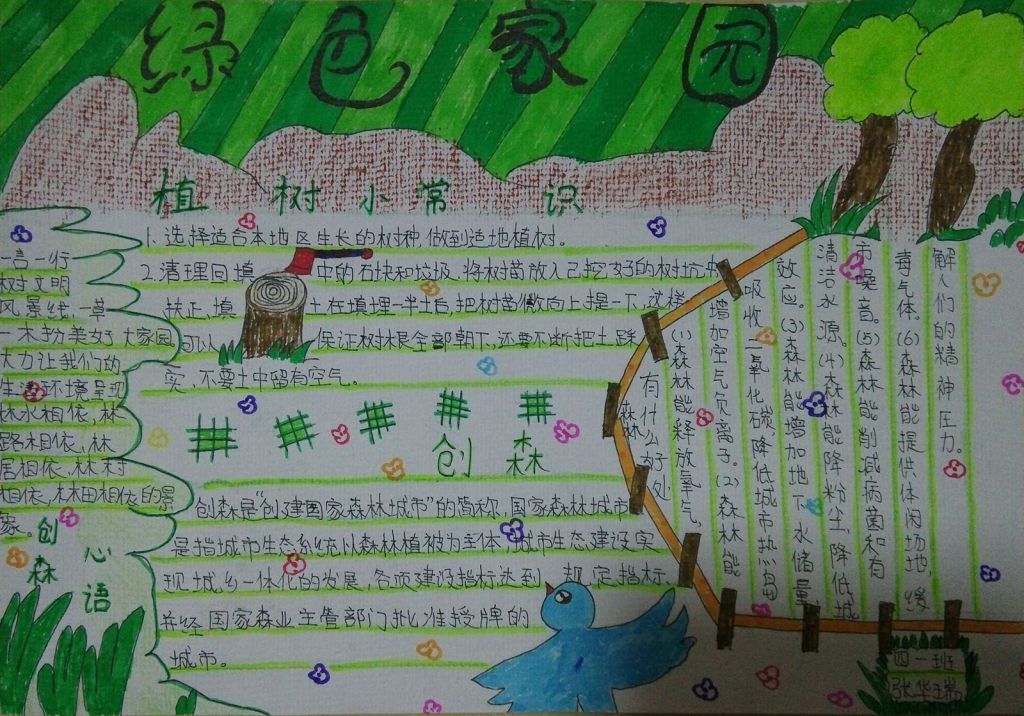 绿色家园
植树小常识
1.选择适合本地区生长的树种,做到适地植树。
2.清理回填中的石块和垃圾,将树苗放入已挖好的树坑中
扶正,填土在填埋一半后,把树苗微向上提一下,这样
可以保证树根全部朝下,还要不断把土踩
实,不要土中留有空气。
创森
创森是“创建国家森林城市”的简称,国家森林城市
是指城市生态系统以森林植被为主体,城市生态建设实
现城乡一体化的发展,各项建设指标达到规定指标,
并经国家森业主管部门批准授牌的
城市。
一言一行
树文明
风景线,一草
一木扮美好大家园
大力让我们的
生活环境呈现
林水相依,林
路相依,林
居相依,林村
相依,林田相依的景
象。
创森
心语
森林
有什么好处
(1)森林能释放氧气,
增加空气负离子。(2)森林能
吸收二氧化碳,降低城市热岛
效应。(3)森林能增加地下水储量,
清洁水源。(4)森林能降粉尘,降低城
市噪音。(5)森林能削减病菌和有
毒气体。(6)森林能提供休闲场地,缓
解人们的精神压力。
四一班
张华瑞